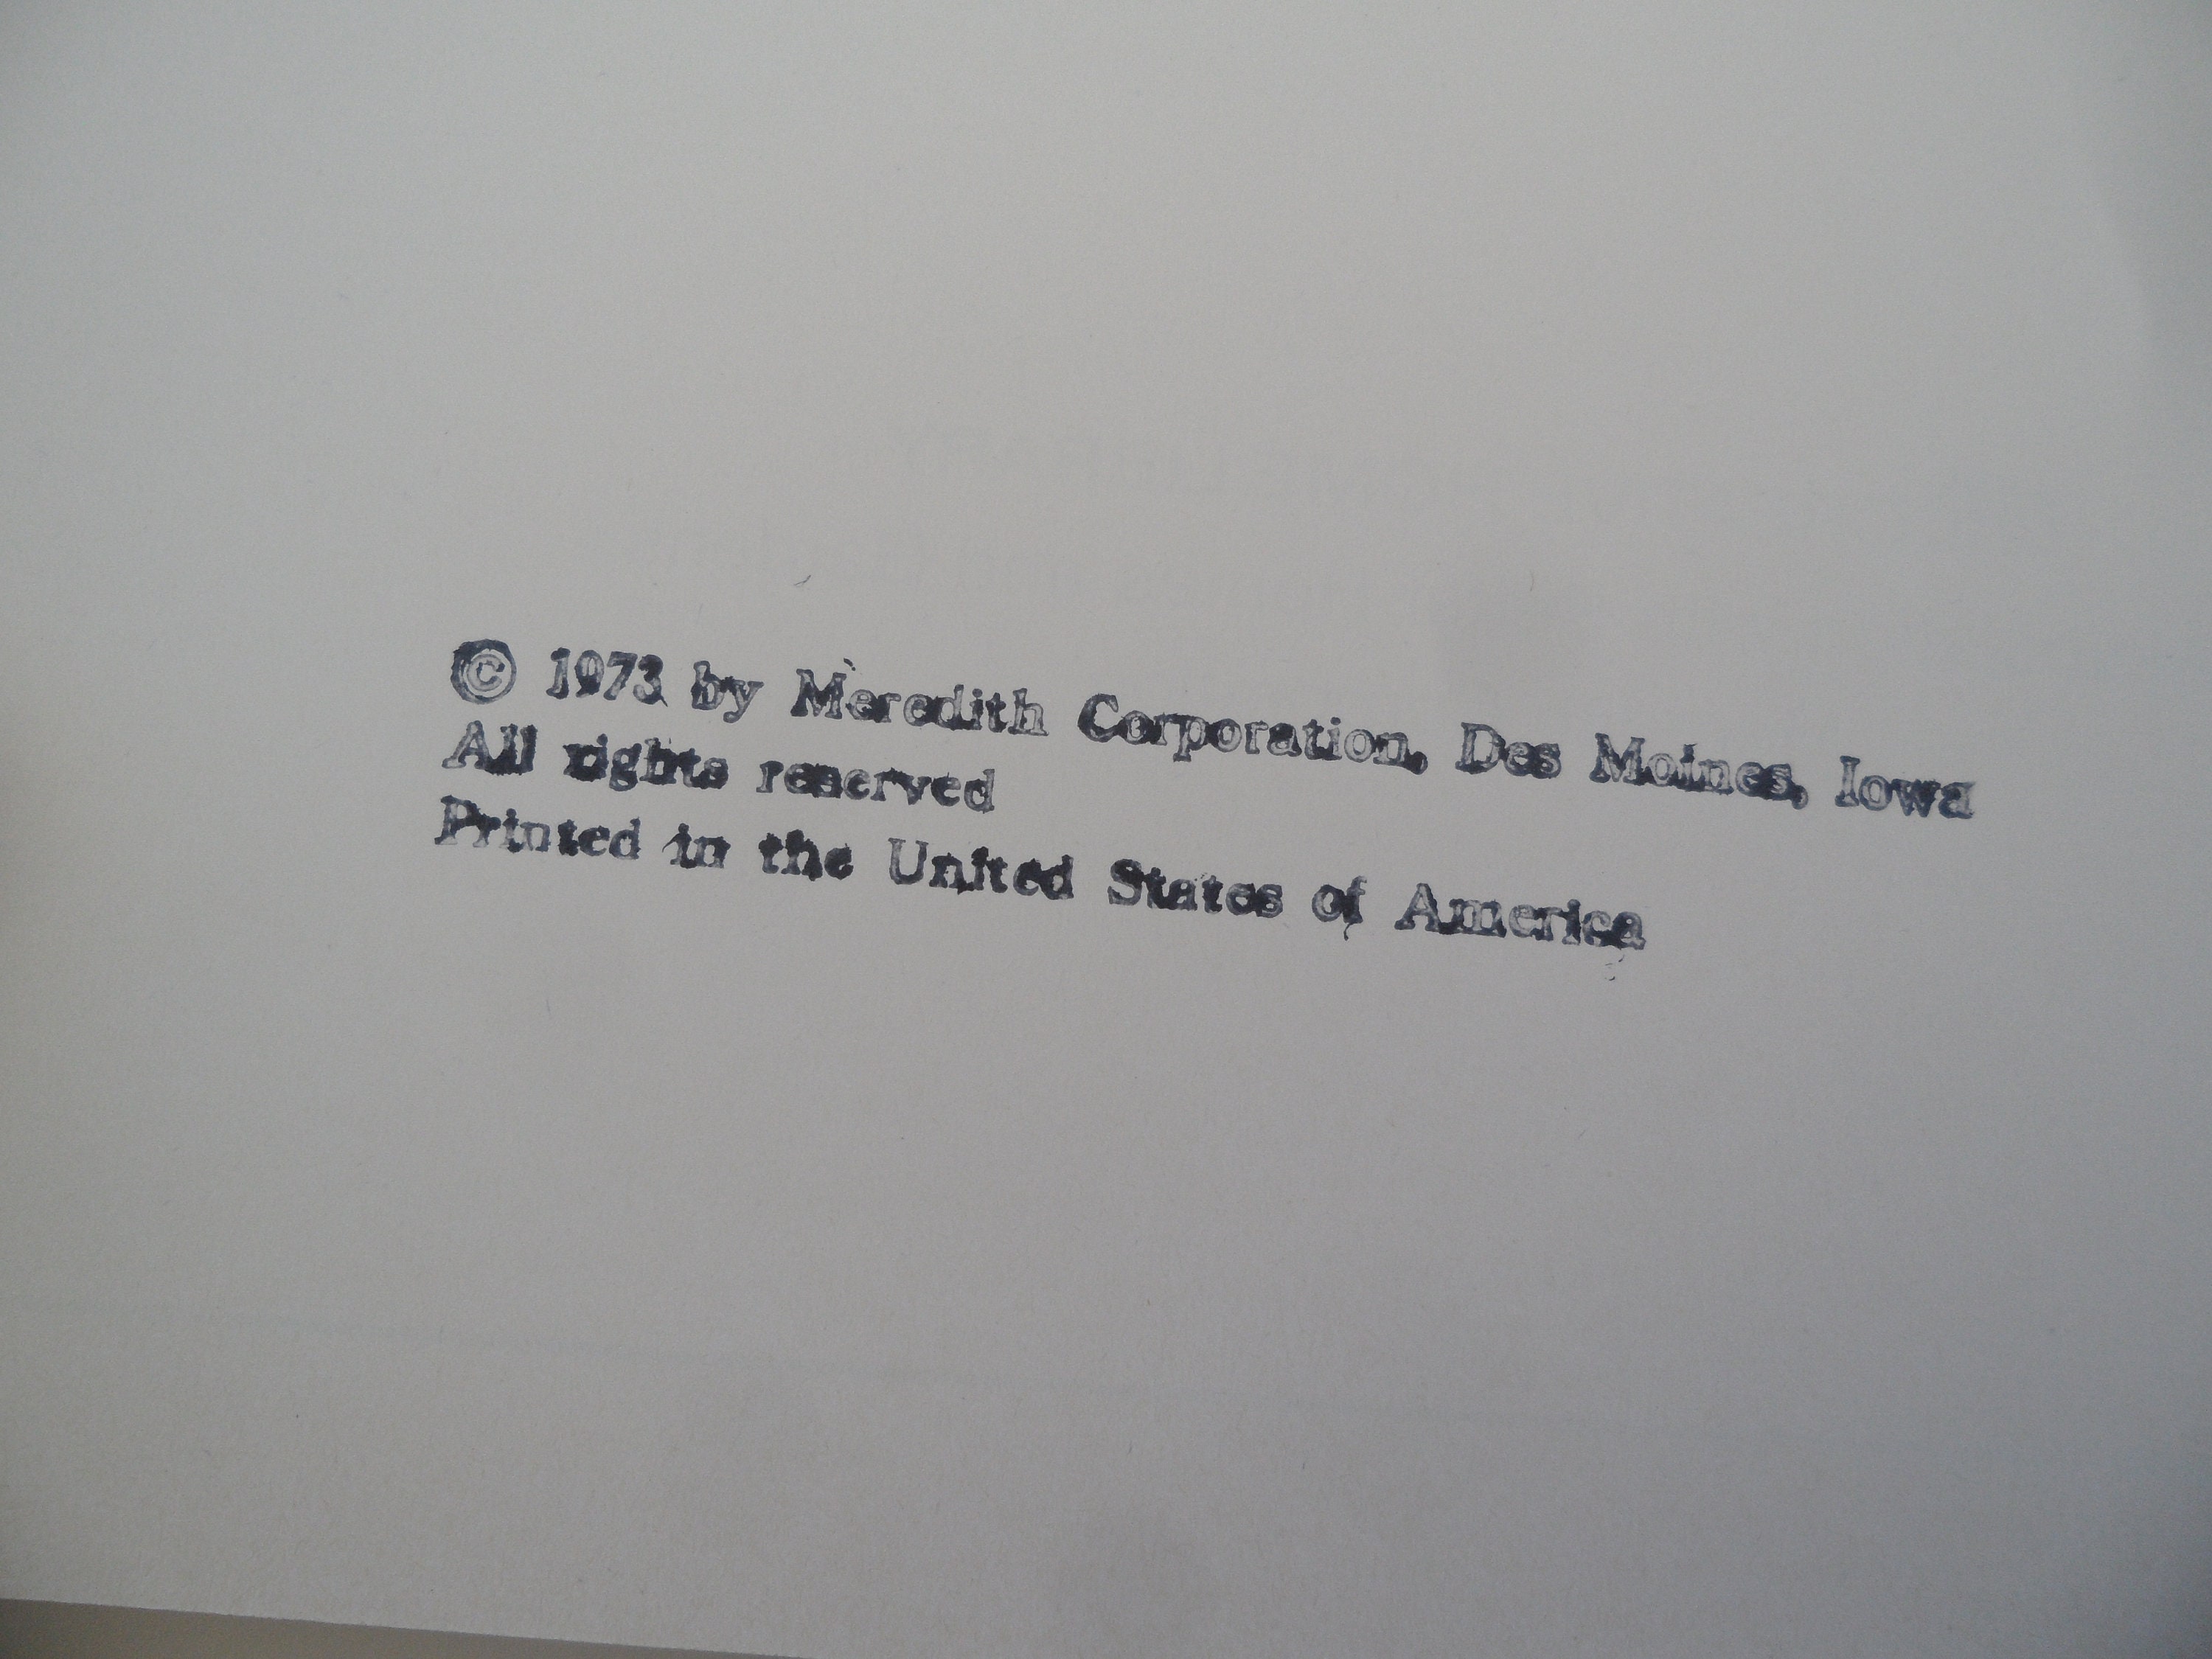 © 1973 by Meredith Corporation, Des Moines, Iowa
All rights reserved
Printed in the United States of America